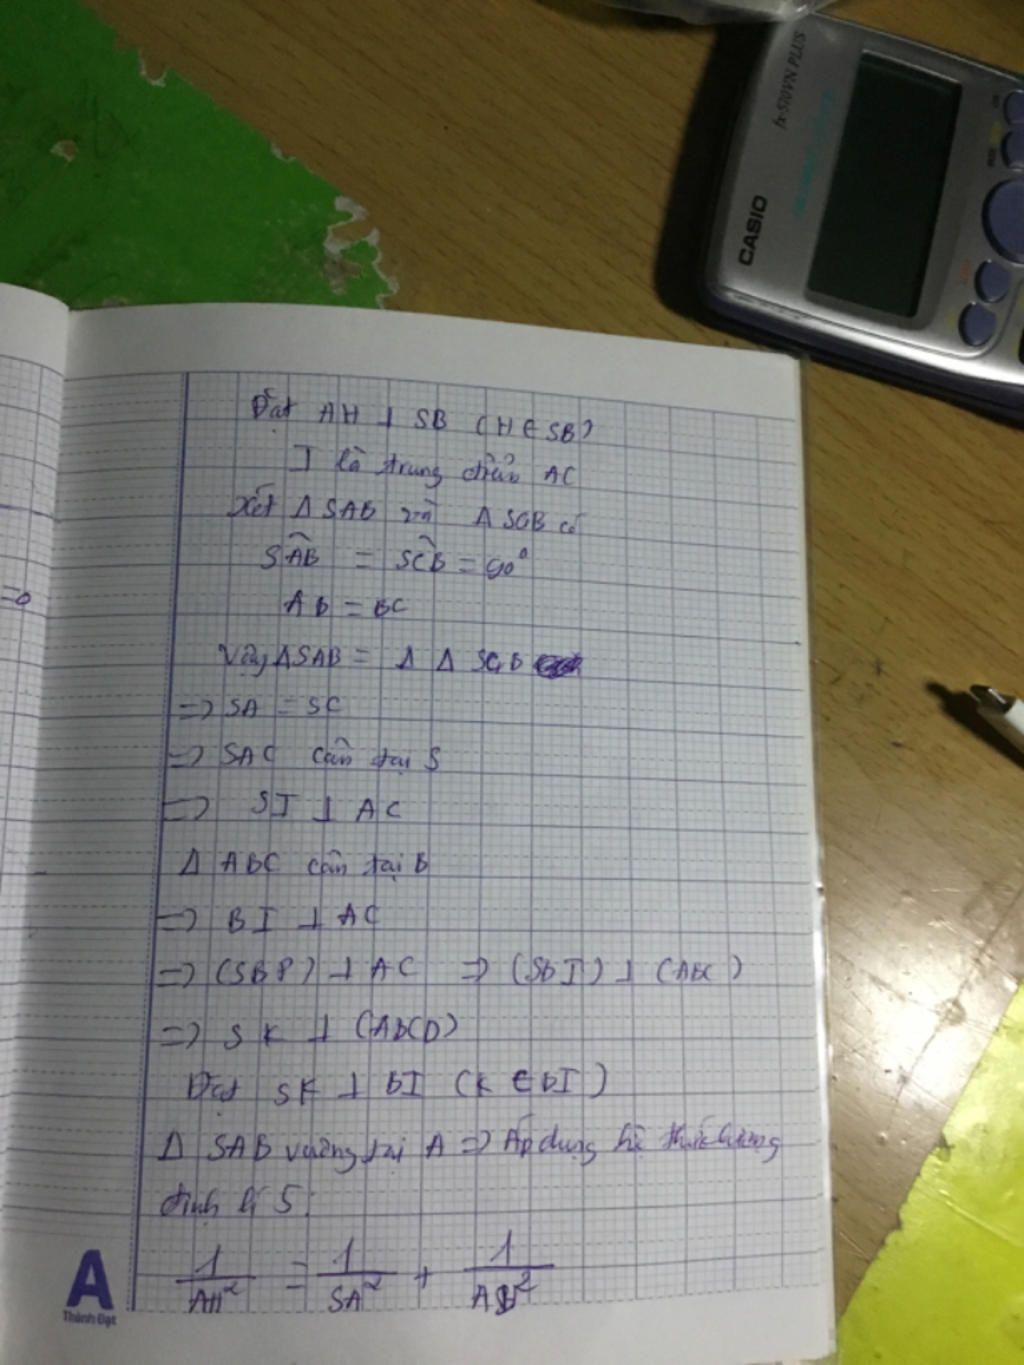 CASIO
fx-570VN PLUS
Đặt AH ⊥ SB (H ∈ SB)
I là trung điểm AC
Xét Δ SAB và Δ SCB có
SAB^ = SCB^ = 90°
AB = BC
Vậy ΔSAB = Δ Δ SCB
=> SA = SC
=> SAC cân tại S
=> SI ⊥ AC
Δ ABC cân tại B
=> BI ⊥ AC
=> (SBP) ⊥ AC => (SBI) ⊥ (ABC)
=> SK ⊥ (ABCD)
Đặt SK ⊥ BI (K ∈ BI)
Δ SAB vuông tại A => Áp dụng hệ thức lượng
định lí 5:
1/AH² = 1/SA² + 1/AB²
=0
A
Thành Đạt